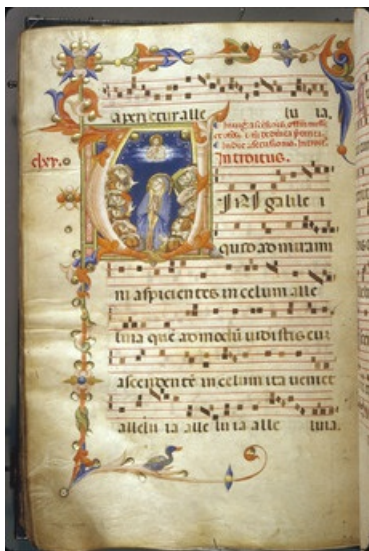 aperietur alle lu ia.
Introitus.
IRI galile i
quid admirami
ni aspicientes in celum alle
luia quē admodū uidistis eum
ascendentē in celum ita ueniet
allelu ia alle lu ia alle luia.